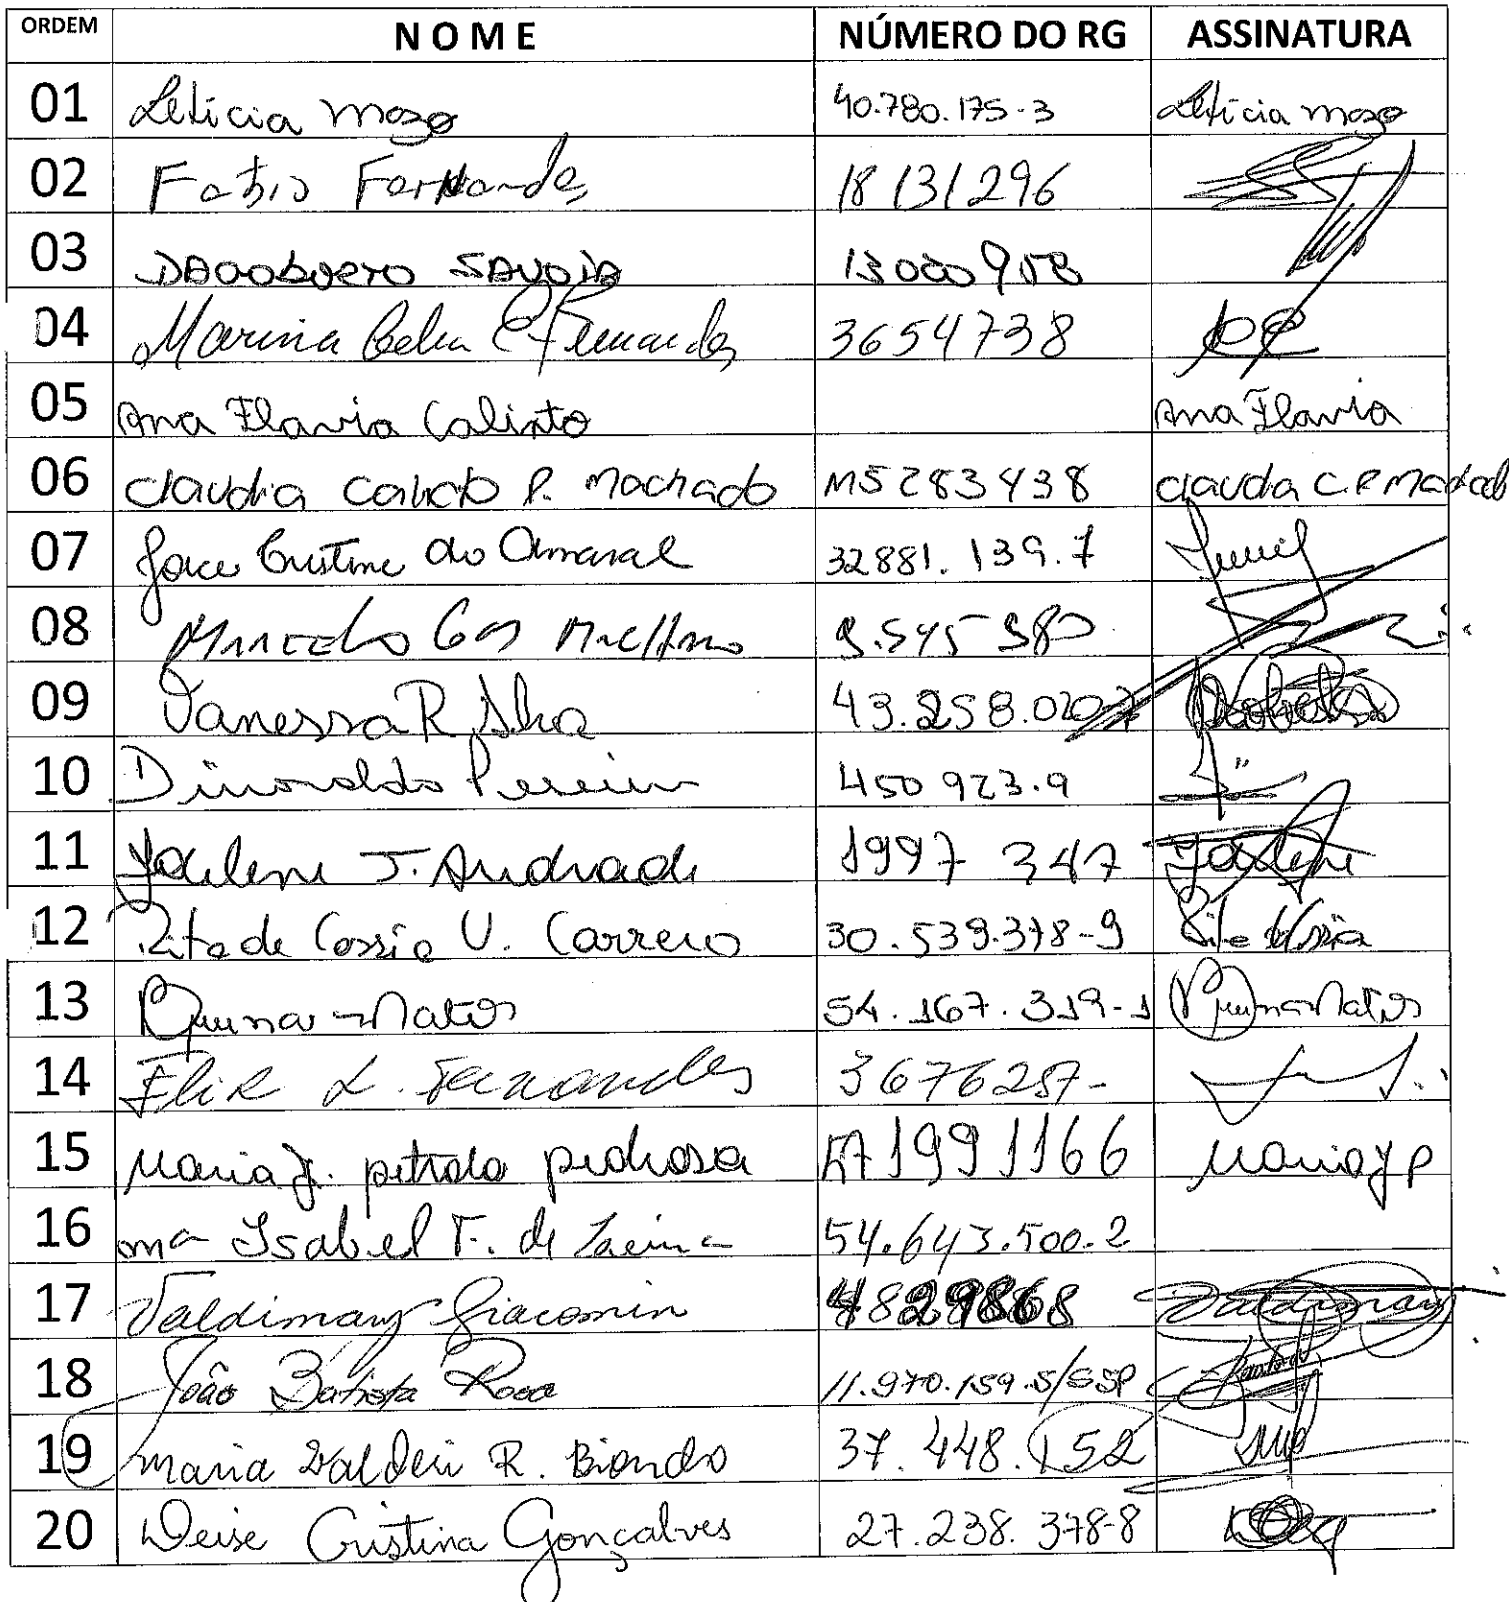 ORDEM NOME NÚMERO DO RG ASSINATURA
01 Letícia Mozo 40.780.175-3 Letícia Mozo
02 Fabio Fernandes 18131296
03 SAVOIA
04 Marina Celia C Fernandes 36547 38
05 Ana Flavia Calixto Ana Flavia
06 Claudia Calixto P. Machado M5283438 Claudia C.P Machado
07 Cristine do Amaral 32881.139.7
08 Marcelo
09 Vanessa R Silva 43.258.020-7
10 Pereira 450 923.9
11 J. Andrade 1997 347
12 Rita de Cassia V. Carrero 30.539.378-9 Rita Cássia
13 Bruna Matos 54.167.319-1 Bruna Matos
14 L. Fernandes 3676257-
15 Maria J. pedrosa 1991166 Maria J P
16 Mª Isabel F. de 54.643.500-2
17 Valdimary Giacomin 4829868 Valdimary
18 João Batista Rosa 11.970.159-5/SSP
19 Maria Valdeci R. Biondo 37.448.152
20 Deise Cristina Gonçalves 27.238.378-8